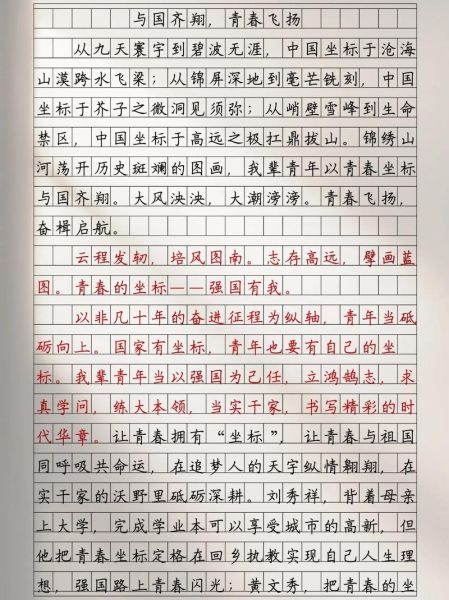 与国齐翔，青春飞扬
从九天寰宇到碧波无涯，中国坐标于沧海
山漠跨水飞梁；从锦屏深地到毫芒铣刻，中国
坐标于芥子之微洞见须弥；从峭壁雪峰到生命
禁区，中国坐标于高远之极扛鼎拔山。锦绣山
河荡开历史斑斓的图画，我辈青年以青春坐标
与国齐翔。大风泱泱，大潮滂滂。青春飞扬，
奋楫启航。
云程发轫，培风图南。志存高远，擘画蓝
图。青春的坐标——强国有我。
以非凡十年的奋进征程为纵轴，青年当砥
砺向上。国家有坐标，青年也要有自己的坐
标。我辈青年当以强国为己任，立鸿鹄志，求
真学问，练大本领，当实干家，书写精彩的时
代华章。让青春拥有“坐标”，让青春与祖国
同呼吸共命运，在追梦人的天宇纵情翱翔，在
实干家的沃野里砥砺深耕。刘秀祥，背着母亲
上大学，完成学业本可以享受城市的高新，但
他把青春坐标定格在回乡执教实现自己人生理
想，强国路上青春闪光；黄文秀，把青春的坐